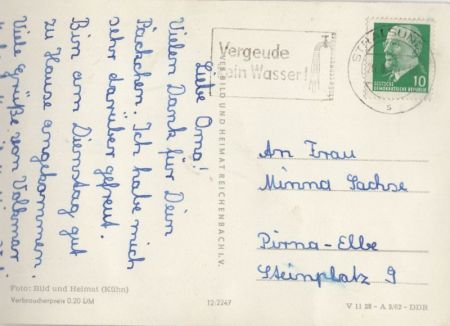 Liebe Oma!
Vielen Dank für Dein
Päckchen. Ich habe mich
sehr darüber gefreut.
Bin am Dienstag gut
zu Hause angekommen.
Viele Grüße von Volkmar
Foto: Bild und Heimat (Kühn)
Verbraucherpreis 0,20 DM
12-2247
VEB BILD UND HEIMAT REICHENBACH I. V.
Vergeude
kein Wasser!
STRALSUND
s
10
DEUTSCHE
DEMOKRATISCHE REPUBLIK
An Frau
Minna Sachse
Pirna-Elbe
Steinplatz 9
V 11 28 - A 3/62 - DDR